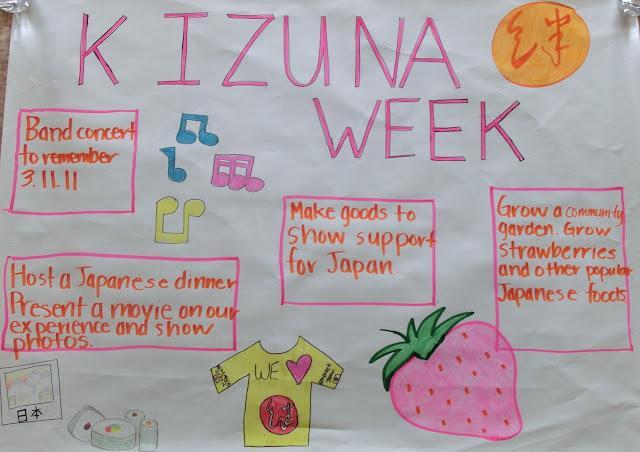 KIZUNA
WEEK
絆
Band concert
to remember
3.11.11
Make goods to
show support
for Japan
Grow a community
garden. Grow
strawberries
and other popular
Japanese foods
Host a Japanese dinner
Present a movie on our
experience and show
photos.
WE
絆
日本